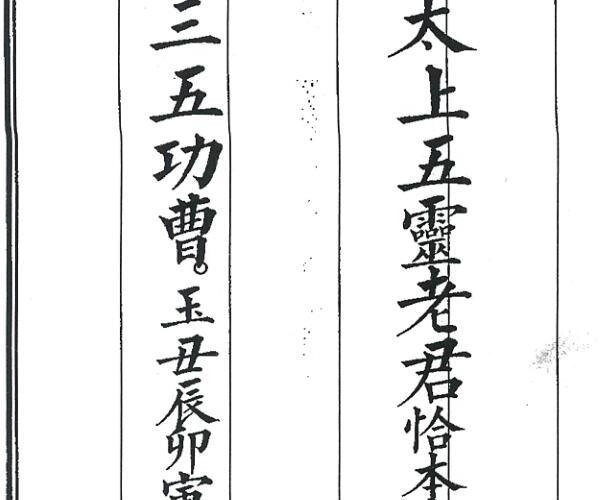 太上五靈老君恰本
三五功曹。玉丑辰卯寅